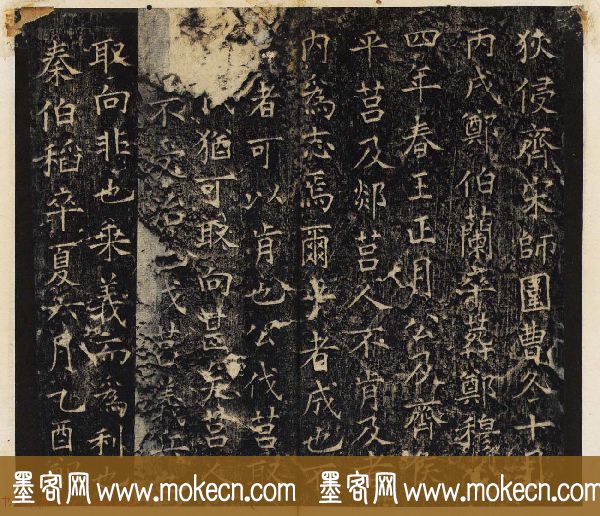 狄侵齊宋師圍曹冬十月
丙戌鄭伯蘭卒葬鄭穆
四年春王正月公及齊侯
平莒及郯莒人不肯及者
内為志焉爾平者成也不
者可以肯也公伐莒取
猶可取向甚矣莒人
不受治也伐莒義兵
取向非也乗義而為利也
秦伯稻卒夏六月乙酉
墨客网 www.mokecn.com 墨客网 www.mokecn.com